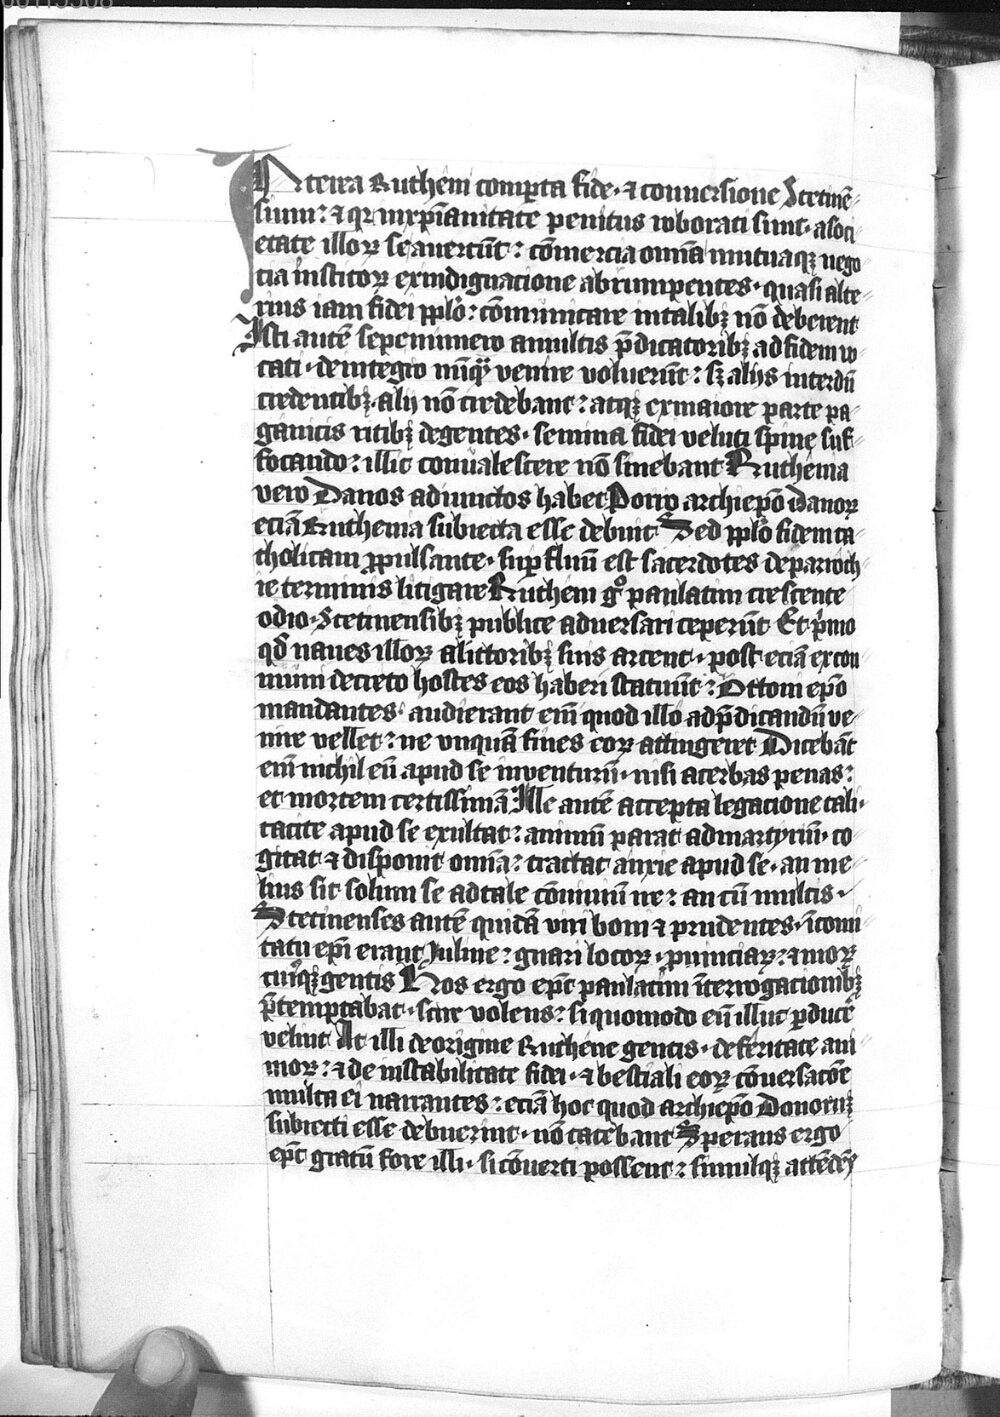 00115308
Interea Ruthem comp̱ta fide · ⁊ conuersione Stetinē-
sium: ⁊ qr̄ in xp̄ianitate penitus roborati sunt · a soci-
etate illoꝝ se auertūt: cōmercia om̄ia mutuaqꝫ nego-
tia institoꝝ ex indignacione abrumpentes · quasi alte-
rius iam fidei pplō: cōmunicare in talibꝫ nō deberent
Isti autē sepenumero a multis p̄dicatoribꝫ ad fidem uo-
cati · de integro nūqͣꝫ venire voluerūt: sꝫ alijs interdū
credentibꝫ · alij nō credebant: atqꝫ ex maiore parte pa-
ganicis ritibꝫ degentes · semina fidei veluti spine suf-
focando: illic conualescere nō sinebant Ruthenia
vero Danos adiunctos habet Porro archiep̄o Danoꝝ
eciā Ruthenia subiecta esse debuit Sed pplō fidem ca-
tholicam ꝓpulsante · suꝑfluū est sacerdotes de parroch-
ie terminis litigare Rutheni gͦ paulatim crescente
odio · Stetinensibꝫ publice aduersari ceperūt Et p̄mo
qd̄ naues illoꝝ a littoribꝫ suis arcent · post eciā ex com-
muni decreto hostes eos haberi statuūt: Ottoni ep̄o
mandantes · audierant em̄ quod illo ad p̄dicandū ve-
nire vellet: ne vnquā fines eoꝝ attingeret Dicebāt
em̄ nichil eū apud se inventurū · nisi acerbas penas:
et mortem certissimā Ille autē accepta legacione tali ·
tacite apud se exultat: animū parat ad martyriū · co-
gitat ⁊ disponit om̄ia: tractat anxie apud se · an me-
lius sit solum se ad tale cōmuniū ne: an cū multis ·
Stetinenses autē quidā viri boni ⁊ prudentes · in comi-
tatu ep̄i erant Juline: gnari locoꝝ · ꝓuinciaꝝ: ⁊ moꝝ
cuiꝰqꝫ gentis Hos ergo ep̄c paulatim īterrogacionibꝫ
p̄temptabat · scire volens: si quomodo eū illuc ꝑducē
velint At illi de origine Ruthene gentis · de feritate ani-
moꝝ: ⁊ de instabilitate fidei · ⁊ bestiali eoꝝ cōuersacōe
multa ei narrantes: eciā hoc quod archiep̄o Donoruꝫ
subiecti esse debuerint · nō tacebant Sperans ergo
ep̄c gratū fore illi · si cōuerti possent: simulqꝫ attēdēs